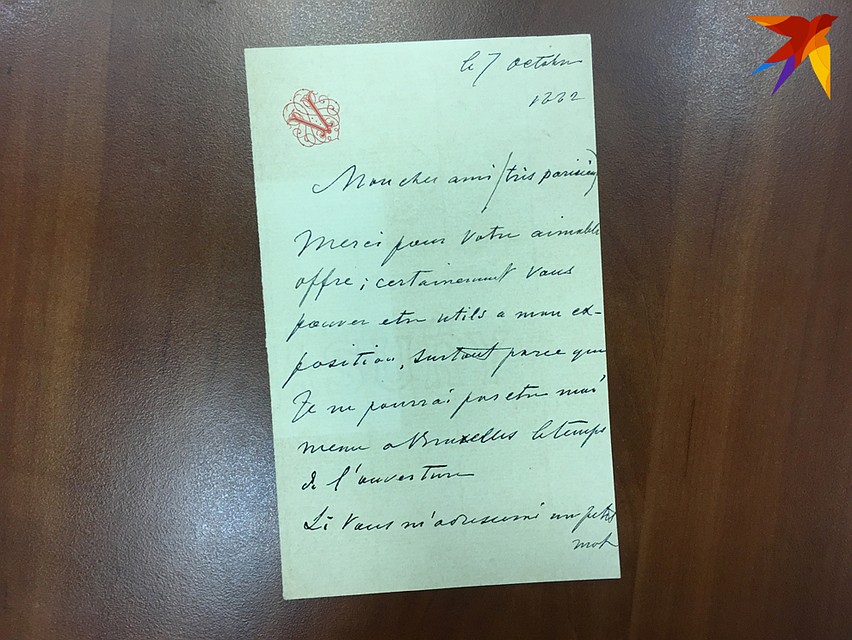 le 7 octobre
1882
V
Mon cher ami (très parisien)
Merci pour votre aimable
offre; certainement vous
pouvez etre utils a mon ex-
position, surtout parce que
Je ne pourrai pas etre moi
meme a Bruxelles le temps
de l'ouverture
Si vous m'adresserai un petit
mot